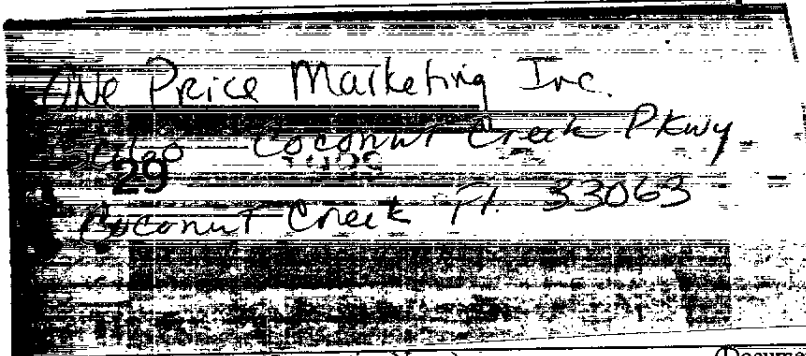 ONe Price Marketing Inc.
Coconut Creek Pkwy
29
Coconut Creek Fl. 33063